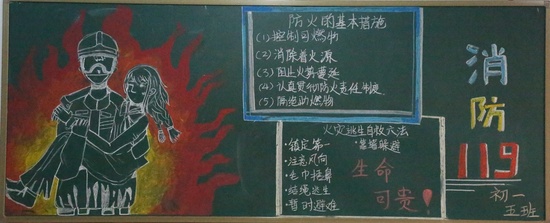 防火的基本措施
(1)控制可燃物
(2)消除着火源
(3)阻止火势蔓延
(4)认真贯彻防火责任制度
(5)隔绝助燃物
火灾逃生自救六法
·镇定第一
·注意风向
·毛巾捂鼻
·结绳逃生
·暂时避难
·靠墙躲避
生命
可贵!
消
防
119
初一
五班